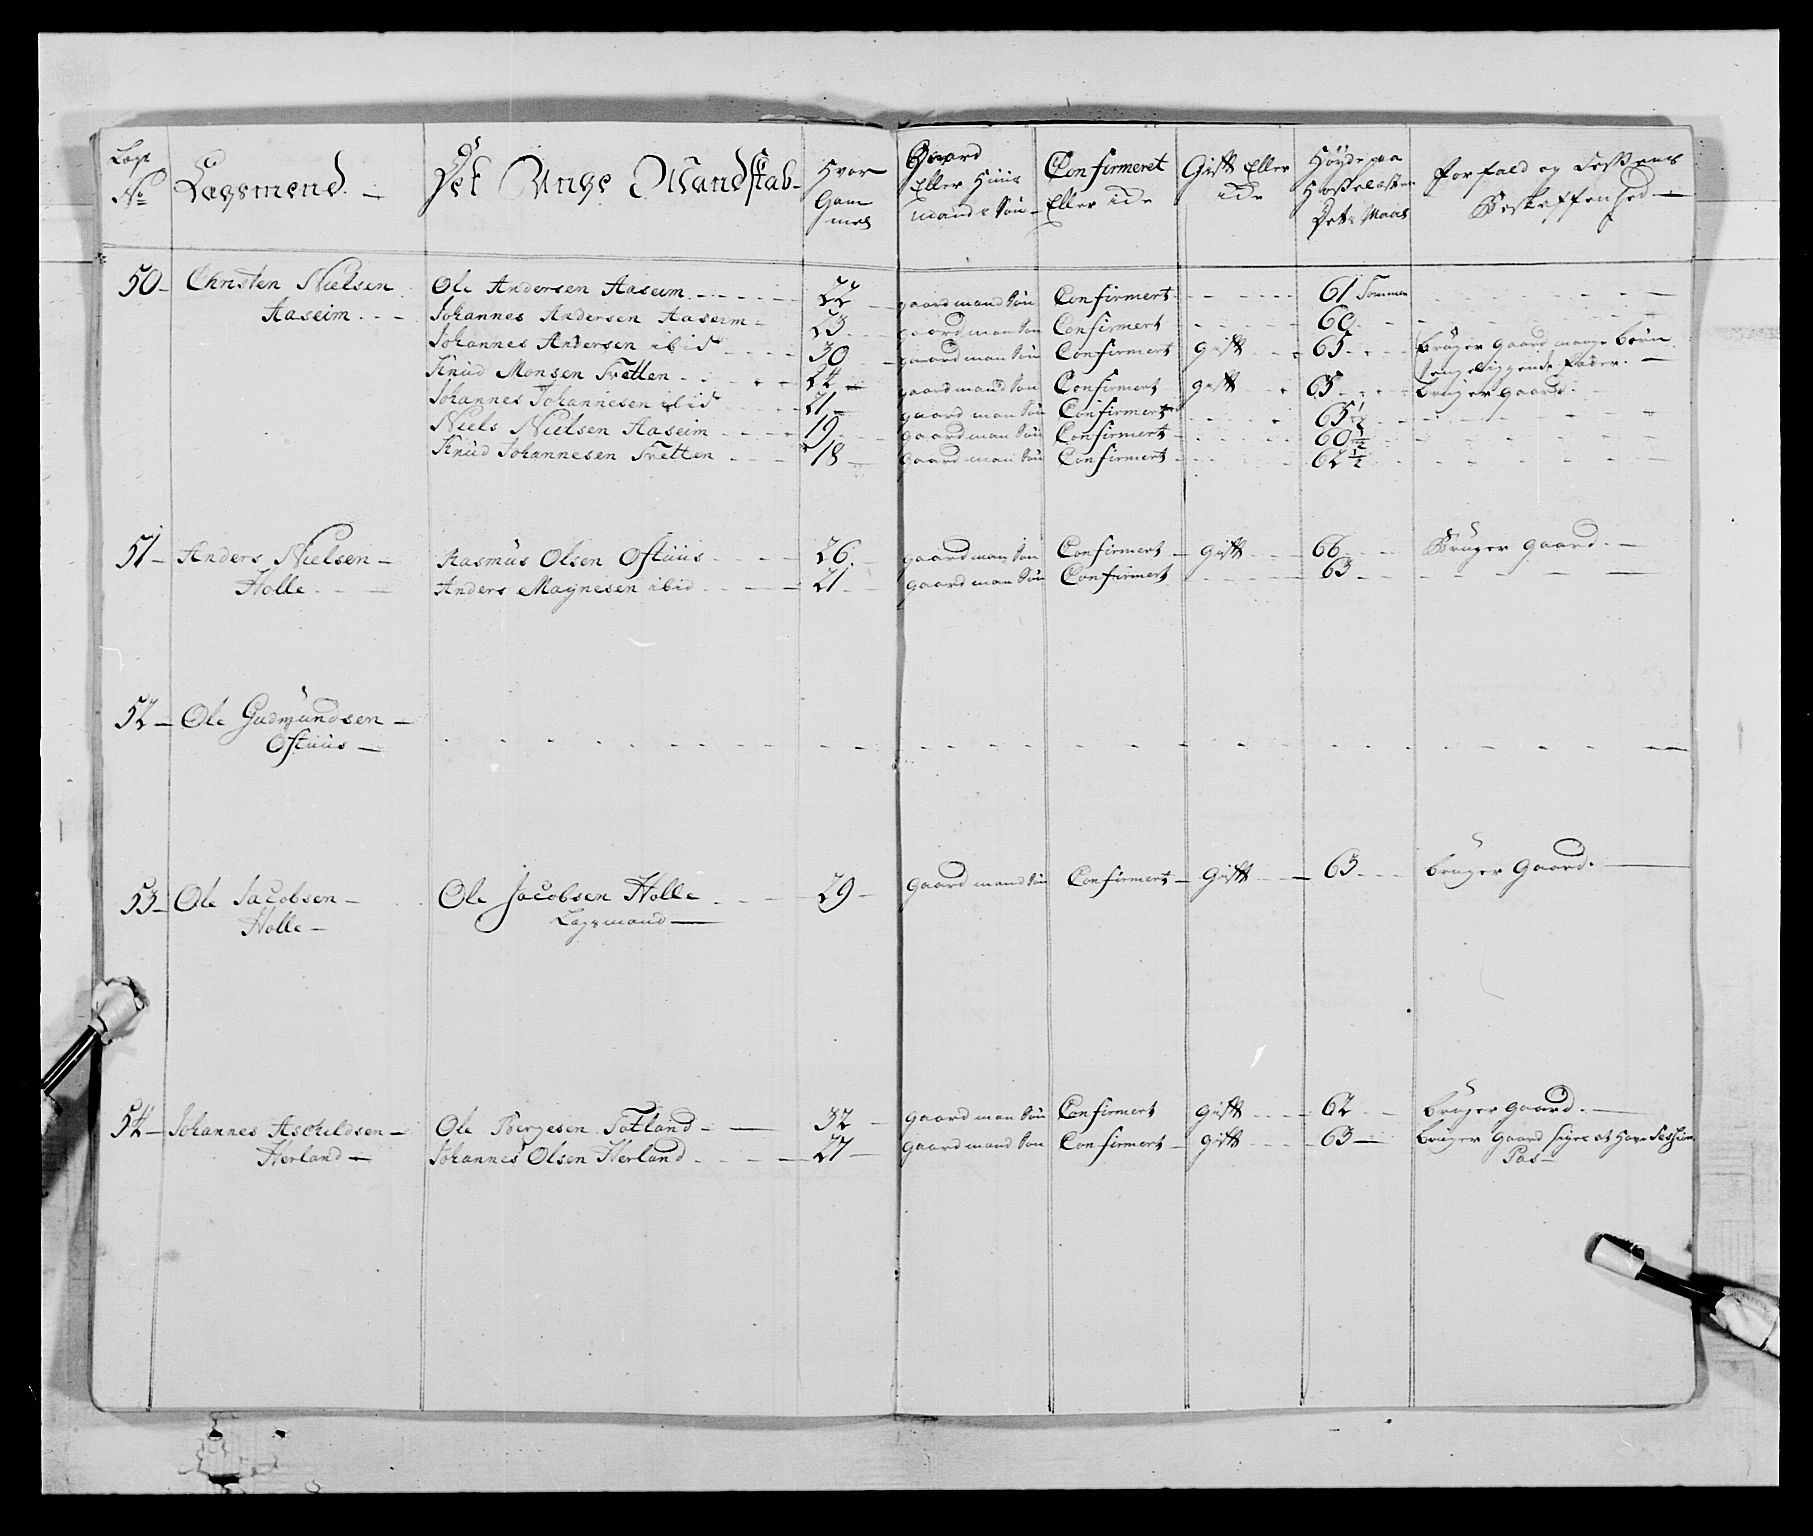 Lægs No Lægsmend. Det Unge Mandskab Hvor Gammel Gaard Eller Huus mands Søn Confirmeret Eller Ide Gift Eller Ide Høyde paa Dets Maas Forfald og Beskaffenhed
50 Christen Nielsen Ole Andersen Aaseim 22 gaard mand Søn Confirmert 61 Tommer
Aaseim Johannes Andersen Aaseim 23 gaard man Søn Confirmert 60
Johannes Andersen ibid 30 gaard man Søn Confirmert gift 65 bruger gaard mange børn
sengeliggende fader.
Knud Monsen Tvetten 24 gaard mand Søn Confirmert gift 65 bruger gaard
Johannes Johannesen ibid 21 gaard man Søn Confirmert 65 1/2
Niels Nielsen Aaseim 19 gaard man Søn Confirmert 60 1/2
Knud Johannesen Tvetten 18 gaard man Søn Confirmert 62 1/2
51 Anders Nielsen Rasmus Olsen Oftuus 26 gaard man Søn Confirmert gift 66 Bruger gaard.
Holle Anders Magnesen ibid 21 gaard man Søn Confirmert 63
52 Ole Gudmundsen
Oftuus
53 Ole Jacobsen Ole Jacobsen Holle 29 gaard mand Søn Confirmert Gift 63 bruger Gaard.
Holle Lægsmand
54 Johannes Aschildsen Ole Bergesen Totland 32 gaard man Søn Confirmert gift 62 bruger gaard.
Herland Johannes Olsen Herland 27 gaard mand Søn Confirmert gift 63 bruger gaard siger at have
Pas